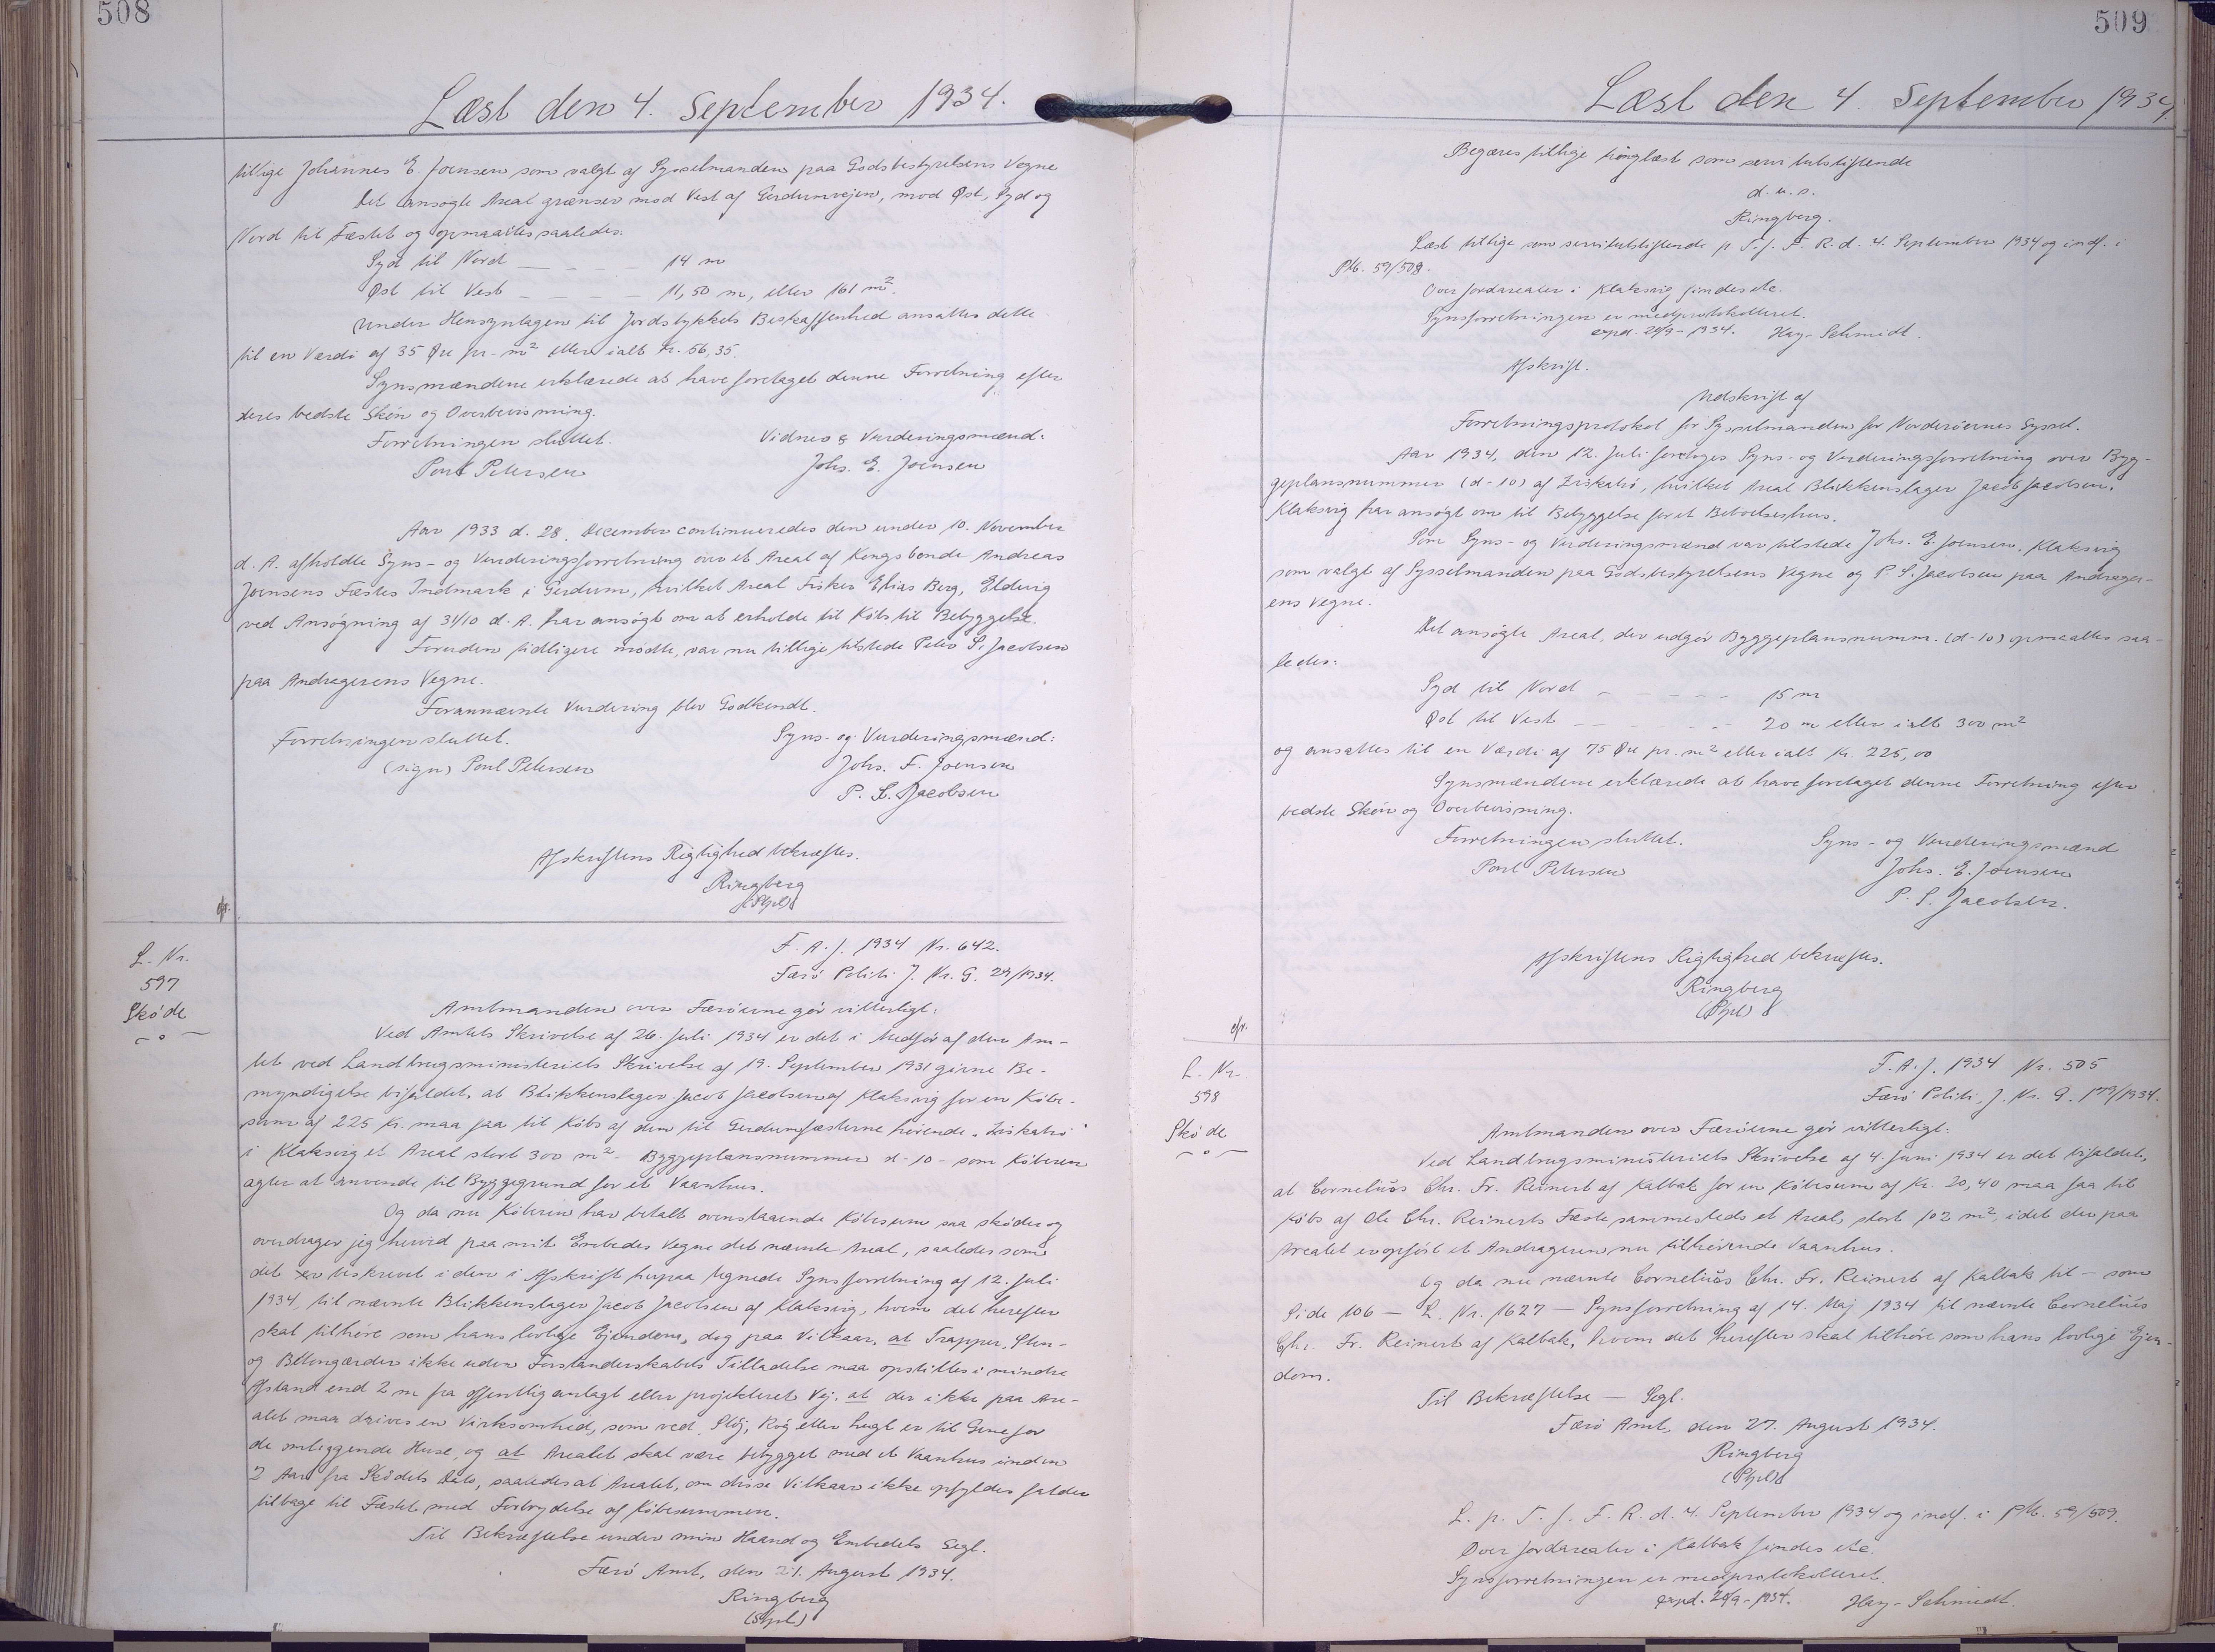 508
Læst den 4. September 1934.
tillige Johannes E. Joensen som valgt af Sysselmanden paa Godsbestyrelsens Vegne
Det ansøgte Areal grænser mod Vest af Gerdumvejen, mod Øst, Syd og
Nord til Fæstet og opmaaltes saaledes:
Syd til Nord — — — — 14 m
Øst til Vest — — — — 11,50 m, eller 161 m².
Under Hensyntagen til Jordstykkets Beskaffenhed ansattes dette
til en Værdi af 35 Øre pr. m² eller ialt Kr. 56,35.
Synsmændene erklærede at have foretaget denne Forretning efter
deres bedste Skøn og Overbevisning.
Forretningen sluttet. Vidner & Vurderingsmænd:
Poul Petersen Johs. E. Joensen
Aar 1933 d. 28. December continueredes den under 10. November
d. A. afholdte Syns- og Vurderingsforretning over et Areal af Kongsbonde Andreas
Joensens Fæstes Indmark i Gerdum, hvilket Areal Fisker Elias Berg, Eldevig
ved Ansøgning af 31/10 d. A. har ansøgt om at erholde til Købs til Bebyggelse.
Foruden tidligere mødte, var nu tillige tilstede Peter S. Jacobsen
paa Andragerens Vegne.
Forannævnte Vurdering blev Godkendt.
Forretningen sluttet. Syns- og Vurderingsmænd:
(sign) Poul Petersen Johs. E. Joensen
P. S. Jacobsen
Afskriftens Rigtighed bekræftes.
Ringberg
L. Nr.
597
Skøde
F. A. J. 1934 Nr. 642.
Færø Politi J. Nr. G. 29/1934.
Amtmanden over Færøerne gør vitterligt:
Ved Amtets Skrivelse af 26. Juli 1934 er det i Medfør af den Am-
tet ved Landbrugsministeriets Skrivelse af 19. September 1931 givne Be-
myndigelse bifaldet, at Blikkenslager Jacob Jacobsen af Klaksvig for en Købe-
sum af 225 Kr. maa faa til Købs af den til Gerdumfæsterne hørende "Ziskatrø"
i Klaksvig et Areal stort 300 m² - Byggeplansnummer d-10 - som Køberen
agter at anvende til Byggegrund for et Vaanhus.
Og da nu Køberen har betalt ovenstaaende Købesum saa skøder og
overdrager jeg herved paa mit Embedes Vegne det nævnte Areal, saaledes som
det er beskrevet i den i Afskrift herpaa tegnede Synsforretning af 12. Juli
1934, til nævnte Blikkenslager Jacob Jacobsen af Klaksvig, hvem det herefter
skal tilhøre som hans lovlige Ejendom, dog paa Vilkaar, at Trapper, Sten-
og Betongærder ikke uden Forstanderskabets Tilladelse maa opstilles i mindre
Afstand end 2 m fra offentlig anlagt eller projekteret Vej, at der ikke paa Are-
alet maa drives en Virksomhed, som ved Støj, Røg eller Lugt er til Gene for
de omliggende Huse, og at Arealet skal være bebygget med et Vaanhus inden
2 Aar fra Skødets Dato, saaledes at Arealet, om disse Vilkaar ikke opfyldes falder
tilbage til Fæstet med Fortrydelse af Købesummen.
Til Bekræftelse under min Haand og Embedets Segl.
Færø Amt, den 21. August 1934.
Ringberg
509
Læst den 4. September 1934
Begæres tillige tinglæst som servitutstiftende
d. u. s.
Ringberg.
Læst tillige som servitutstiftende p T. f. F. R. d. 4. September 1934 og indf. i
Ptk. 59/508.
Over Jordarealer i Klaksvig findes etc.
Synsforretningen er medprotokolleret.
exp. 20/9-1934. Hay-Schmidt.
Afskrift.
Udskrift af
Forretningsprotokol for Sysselmanden for Norderøernes Syssel.
Aar 1934, den 12. Juli foretoges Syns- og Vurderingsforretning over Byg-
geplansnummer (d-10) af Ziskatrø, hvilket Areal Blikkenslager Jacob Jacobsen,
Klaksvig har ansøgt om til Bebyggelse for et Beboelseshus.
Som Syns- og Vurderingsmænd var tilstede Johs. E. Joensen, Klaksvig
som valgt af Sysselmanden paa Godsbestyrelsens Vegne og P. S. Jacobsen paa Andrager-
ens Vegne.
Det ansøgte Areal, der udgør Byggeplansnumm. (d-10) opmaaltes saa-
ledes:
Syd til Nord — — — — 15 m
Øst til Vest — — — — 20 m eller ialt 300 m²
og ansattes til en Værdi af 75 Øre pr. m² eller ialt Kr. 225,00
Synsmændene erklærede at have foretaget denne Forretning efter
bedste Skøn og Overbevisning.
Forretningen sluttet. Syns- og Vurderingsmænd
Poul Petersen Johs. E. Joensen
P. S. Jacobsen.
Afskriftens Rigtighed bekræftes.
Ringberg
L. Nr.
598
Skøde
F. A. J. 1934 Nr. 505
Færø Politi J. Nr. G. 179/1934.
Amtmanden over Færøerne gør vitterligt:
Ved Landbrugsministeriets Skrivelse af 4. Juni 1934 er det bifaldet,
at Cornelius Chr. Fr. Reinert af Kalbak for en Købesum af Kr. 20,40 maa faa til
Købs af Ole Chr. Reinerts Fæste sammesteds et Areal, stort 102 m², idet der paa
Arealet er opført et Andrageren nu tilhørende Vaanhus.
Og da nu nævnte Cornelius Chr. Fr. Reinert af Kalbak til — som
Side 106 — L. Nr. 1627 — Synsforretning af 14. Maj 1934 til nævnte Cornelius
Chr. Fr. Reinert af Kalbak, hvem det herefter skal tilhøre som hans lovlige Ejen-
dom.
Til Bekræftelse — Segl.
Færø Amt, den 27. August 1934.
Ringberg
L. p. T. f. F. R. d. 4. September 1934 og indf. i Ptk. 59/509.
Over Jordarealer i Kalbak findes etc.
Synsforretningen er medprotokolleret.
exped. 20/9-1934. Hay-Schmidt.